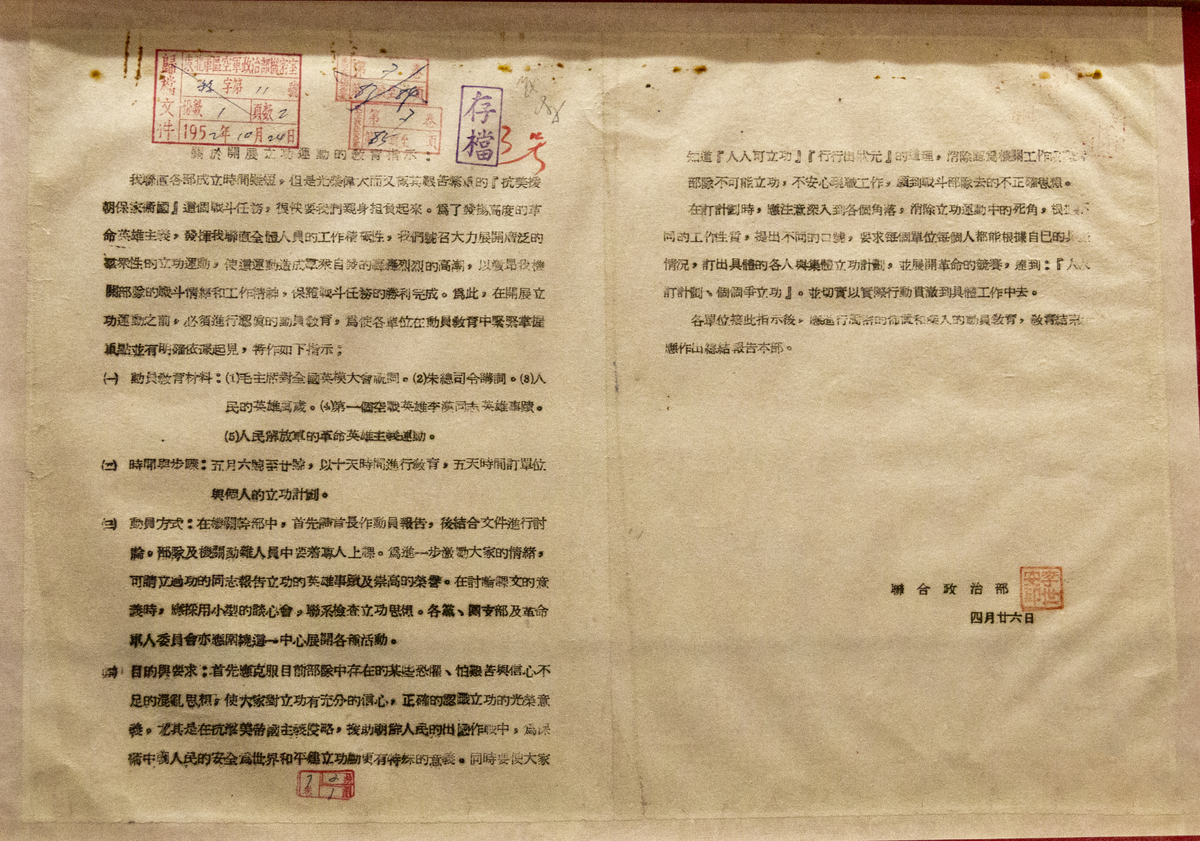 歸檔文件
東北軍區空軍政治部機密室
字第 11 號
份數 1 頁數 2
1952年10月24日
第 7 卷
第 7 卷
85 頁
存檔
3号
關於開展立功運動的教育指示：
我聯直各部成立時間雖短，但是光榮偉大而又萬其艱苦繁重的『抗美援
朝保家衛國』這個戰斗任務，很快要我們親身担負起來。為了發揚高度的革
命英雄主義，發揮我聯直全體人員的工作積極性，我們號召大力展開廣泛的
羣眾性的立功運動，使這運動造成羣眾自發的轟轟烈烈的高潮，以發昂我機
關部隊的戰斗情緒和工作精神，保證戰斗任務的勝利完成。為此，在開展立
功運動之前，必須進行認真的動員教育，為使各單位在動員教育中緊緊掌握
重點並有明確依據起見，特作如下指示；
㈠ 動員教育材料：⑴毛主席對全國英模大會祝詞。⑵朱總司令講詞。⑶人
民的英雄萬歲。⑷第一個空戰英雄李漢同志英雄事蹟。
⑸人民解放軍的革命英雄主義運動。
㈡ 時間與步驟：五月六號至廿號，以十天時間進行教育，五天時間訂單位
與個人的立功計劃。
㈢ 動員方式：在機關幹部中，首先請首長作動員報告，後結合文件進行討
論。部隊及機關勤雜人員中要着專人上課。為進一步激勵大家的情緒，
可請立過功的同志報告立功的英雄事蹟及崇高的榮譽。在討論課文的意
義時，應採用小型的談心會，聯系檢查立功思想。各黨、團支部及革命
軍人委員會亦應圍繞這一中心展開各種活動。
㈣ 目的與要求：首先應克服目前部隊中存在的某些恐懼、怕艱苦與信心不
足的混亂思想，使大家對立功有充分的信心，正確的認識立功的光榮意
義，尤其是在抗擊美帝國主義侵略，援助朝鮮人民的出國作戰中，為保
衛中國人民的安全為世界和平建立功勳更有特殊的意義。同時要使大家
知道『人人可立功』『行行出狀元』的道理，消除認為機關工作
部隊不可能立功，不安心現職工作，願到戰斗部隊去的不正確思想。
在訂計劃時，應注意深入到各個角落，消除立功運動中的死角，根據不
同的工作生質，提出不同的口號，要求每個單位每個人都能根據自已的具體
情況，訂出具體的各人與集體立功計劃，並展開革命的競賽，達到：『人人
訂計劃、個個爭立功』。並切實以實際行動貫澈到具體工作中去。
各單位接此指示後，應進行周密的佈置和深入的動員教育，教育結束
應作出總結報告本部。
聯合政治部
四月廿六日